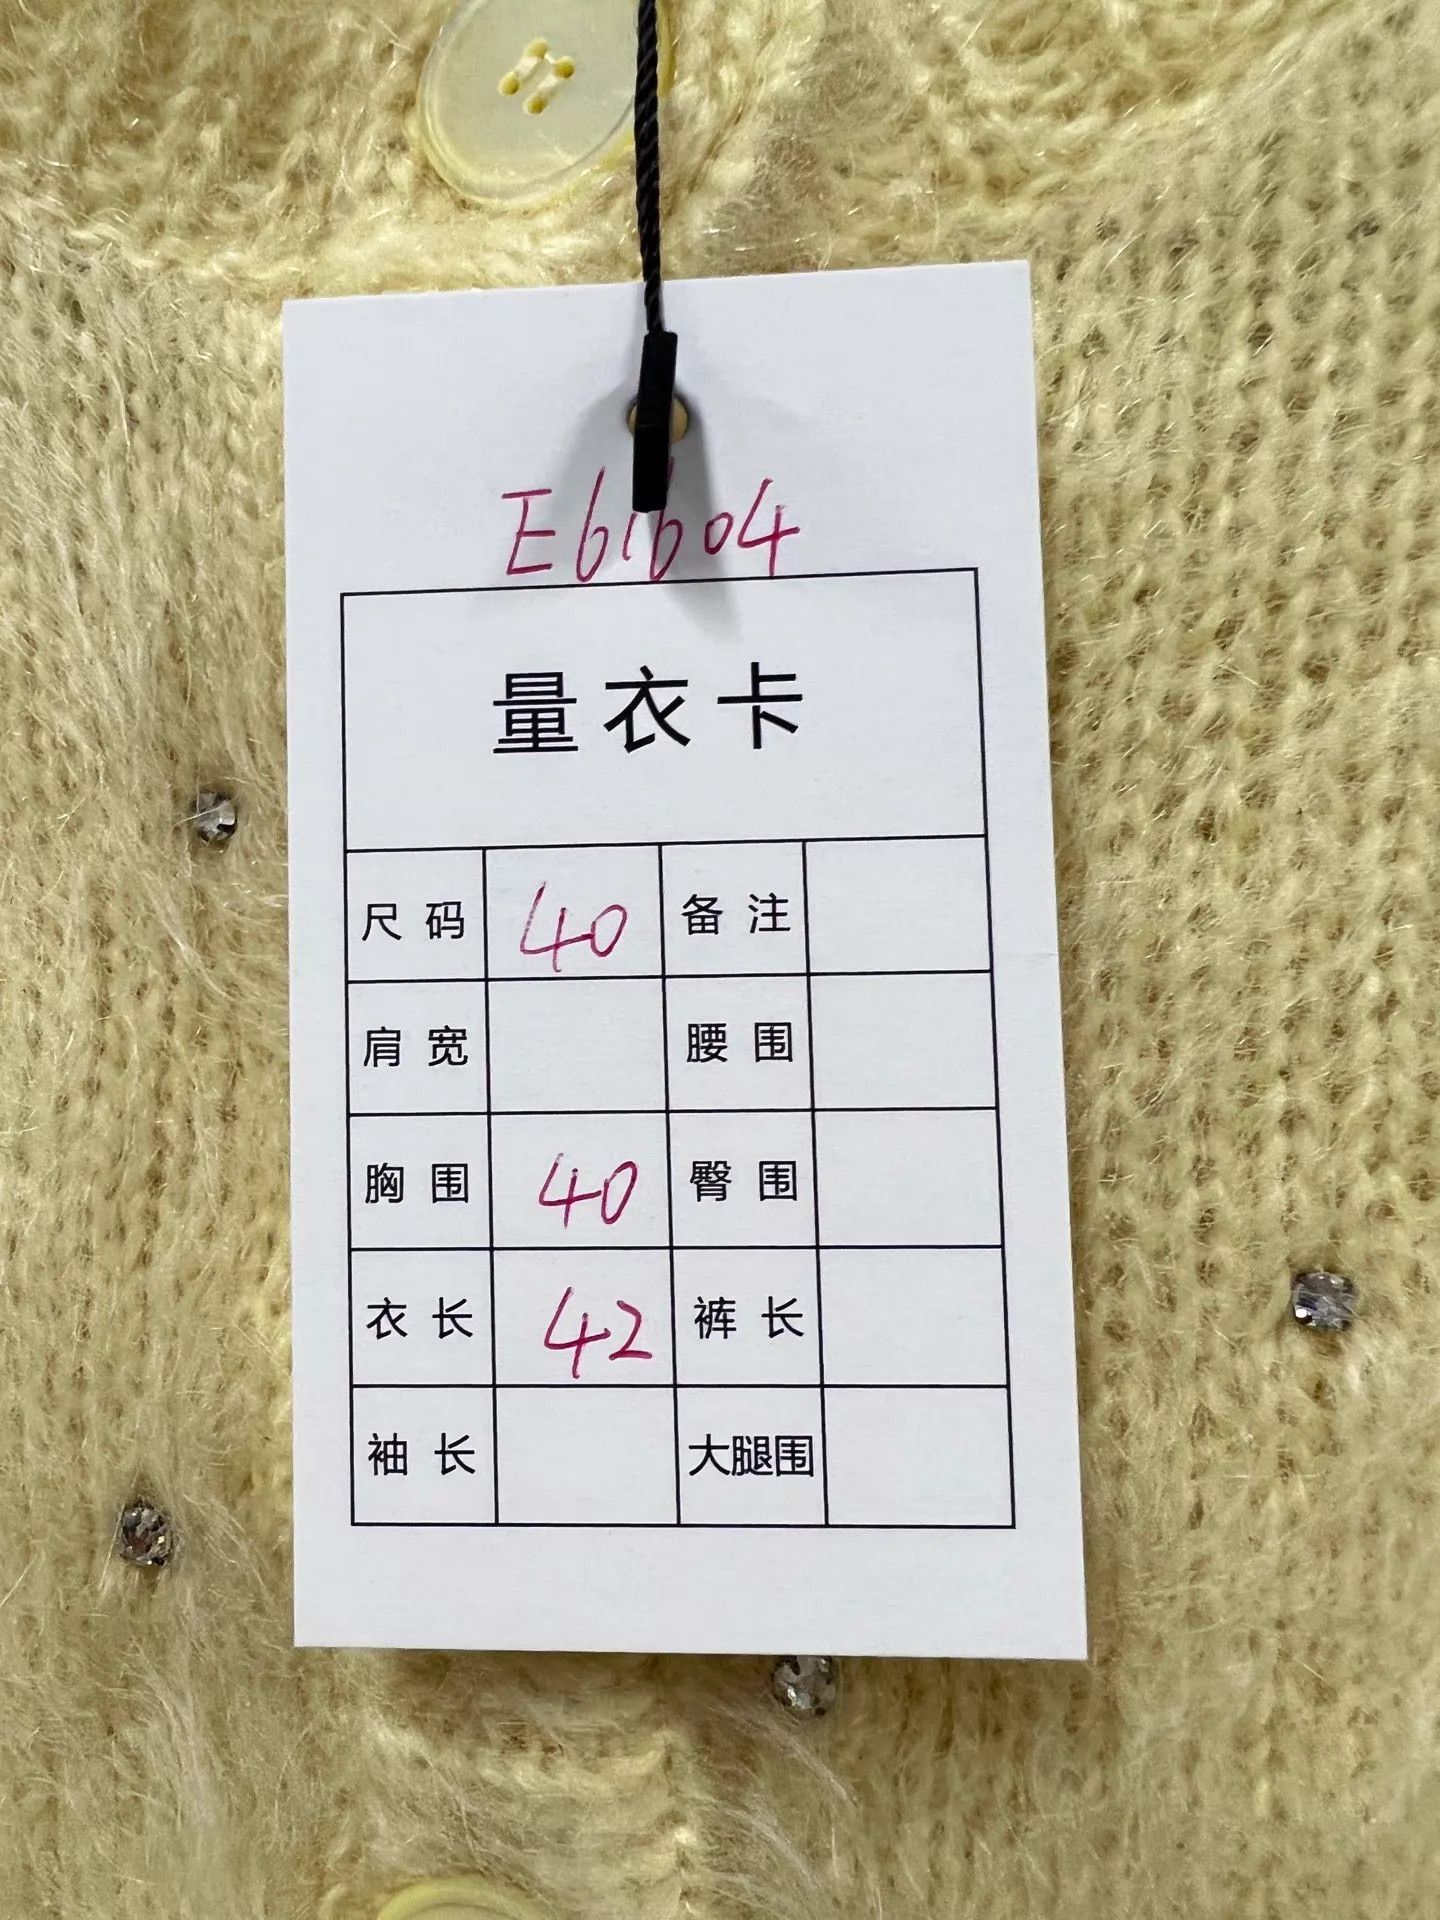 E61604
量衣卡
尺码 40 备注
肩宽 腰围
胸围 40 臀围
衣长 42 裤长
袖长 大腿围